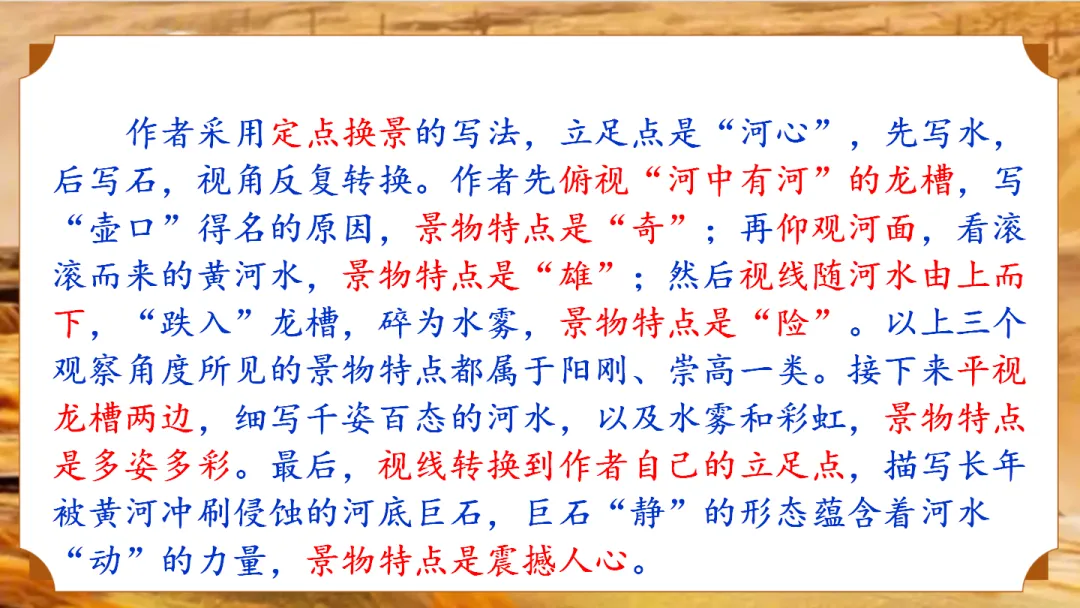 作者采用定点换景的写法，立足点是“河心”，先写水，
后写石，视角反复转换。作者先俯视“河中有河”的龙槽，写
“壶口”得名的原因，景物特点是“奇”；再仰观河面，看滚
滚而来的黄河水，景物特点是“雄”；然后视线随河水由上而
下，“跌入”龙槽，碎为水雾，景物特点是“险”。以上三个
观察角度所见的景物特点都属于阳刚、崇高一类。接下来平视
龙槽两边，细写千姿百态的河水，以及水雾和彩虹，景物特点
是多姿多彩。最后，视线转换到作者自己的立足点，描写长年
被黄河冲刷侵蚀的河底巨石，巨石“静”的形态蕴含着河水
“动”的力量，景物特点是震撼人心。